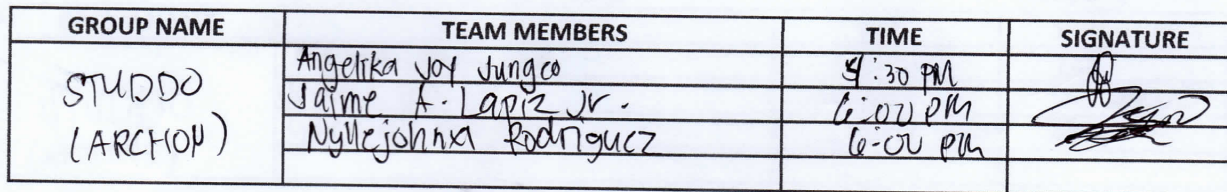 GROUP NAME TEAM MEMBERS TIME SIGNATURE
STUDDO
(ARCHON)
Angelika Joy Jungco :30 PM
Jaime A. Lapiz Jr. 6:00 PM
Rodriguez 6:00 PM